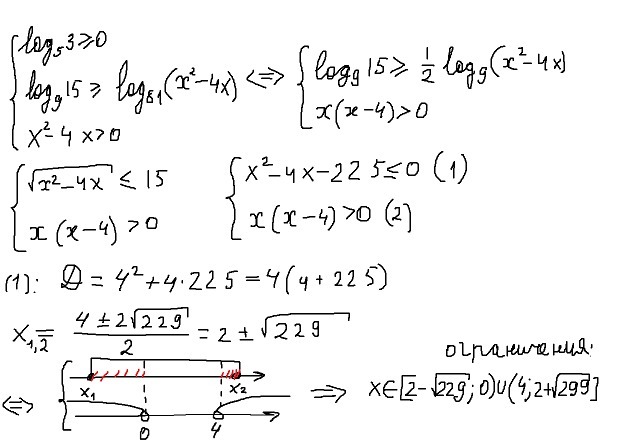 { log₅3 ≥ 0
{ log₉15 ≥ log₈₁(x²-4x) <=> { log₉15 ≥ 1/2 log₉(x²-4x)
{ x²-4x>0 { x(x-4)>0
{ √(x²-4x) ≤ 15 { x²-4x-225≤0 (1)
{ x(x-4)>0 { x(x-4)>0 (2)
(1): D = 4²+4·225 = 4(4+225)
x₁,₂ = (4±2√229)/2 = 2±√229
ограничания:
<=> { x₁ x₂ => x∈[2-√229; 0)∪(4; 2+√299]
0 4